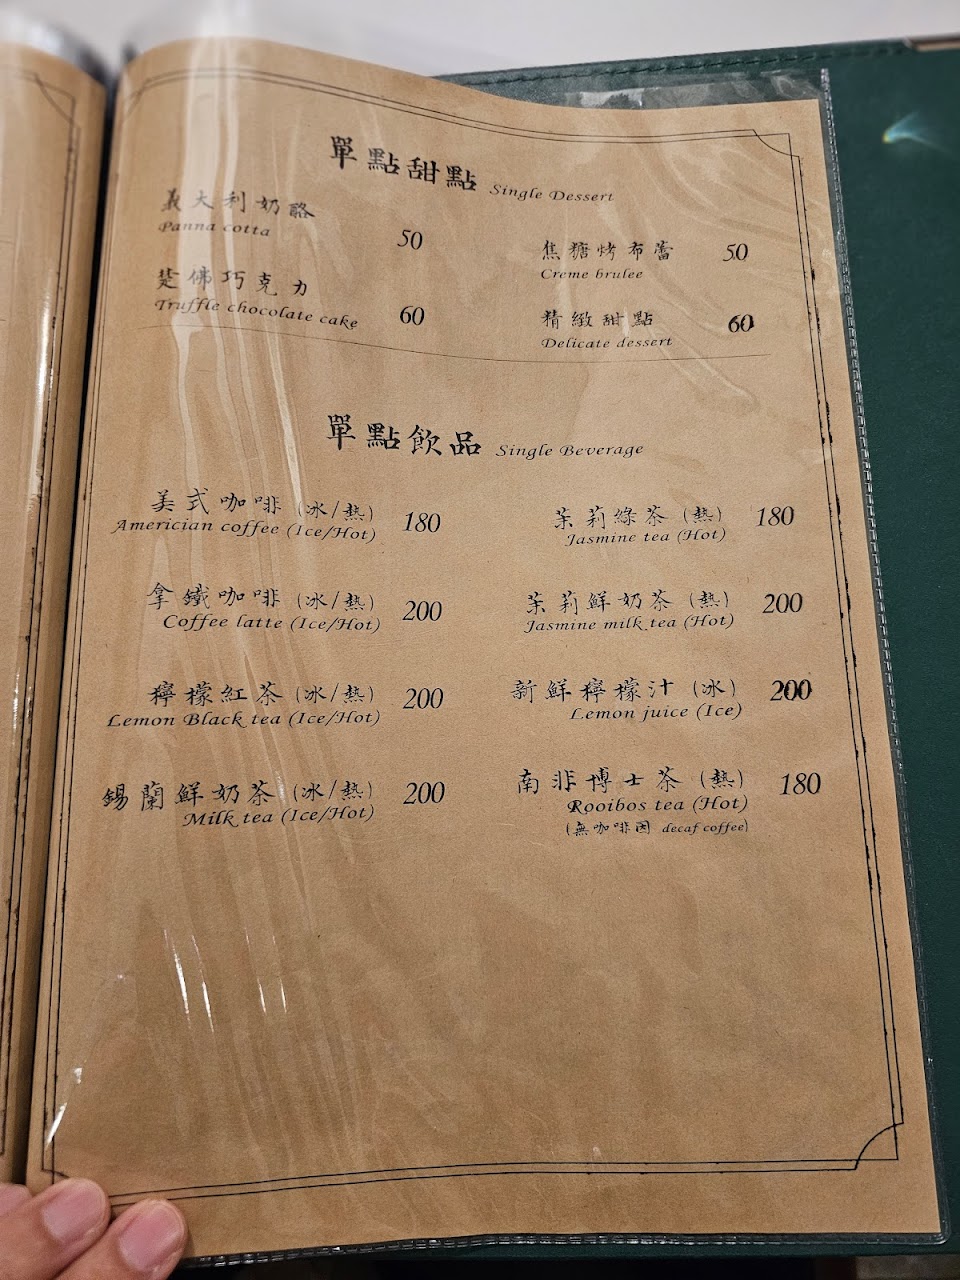 單點甜點 Single Dessert
義大利奶酪 50
Panna cotta
焦糖烤布蕾 50
Creme brulee
楚佛巧克力 60
Truffle chocolate cake
精緻甜點 60
Delicate dessert
單點飲品 Single Beverage
美式咖啡 (冰/熱) 180
Americian coffee (Ice/Hot)
茉莉綠茶 (熱) 180
Jasmine tea (Hot)
拿鐵咖啡 (冰/熱) 200
Coffee latte (Ice/Hot)
茉莉鮮奶茶 (熱) 200
Jasmine milk tea (Hot)
檸檬紅茶 (冰/熱) 200
Lemon Black tea (Ice/Hot)
新鮮檸檬汁 (冰) 200
Lemon juice (Ice)
錫蘭鮮奶茶 (冰/熱) 200
Milk tea (Ice/Hot)
南非博士茶 (熱) 180
Rooibos tea (Hot)
(無咖啡因 decaf coffee)